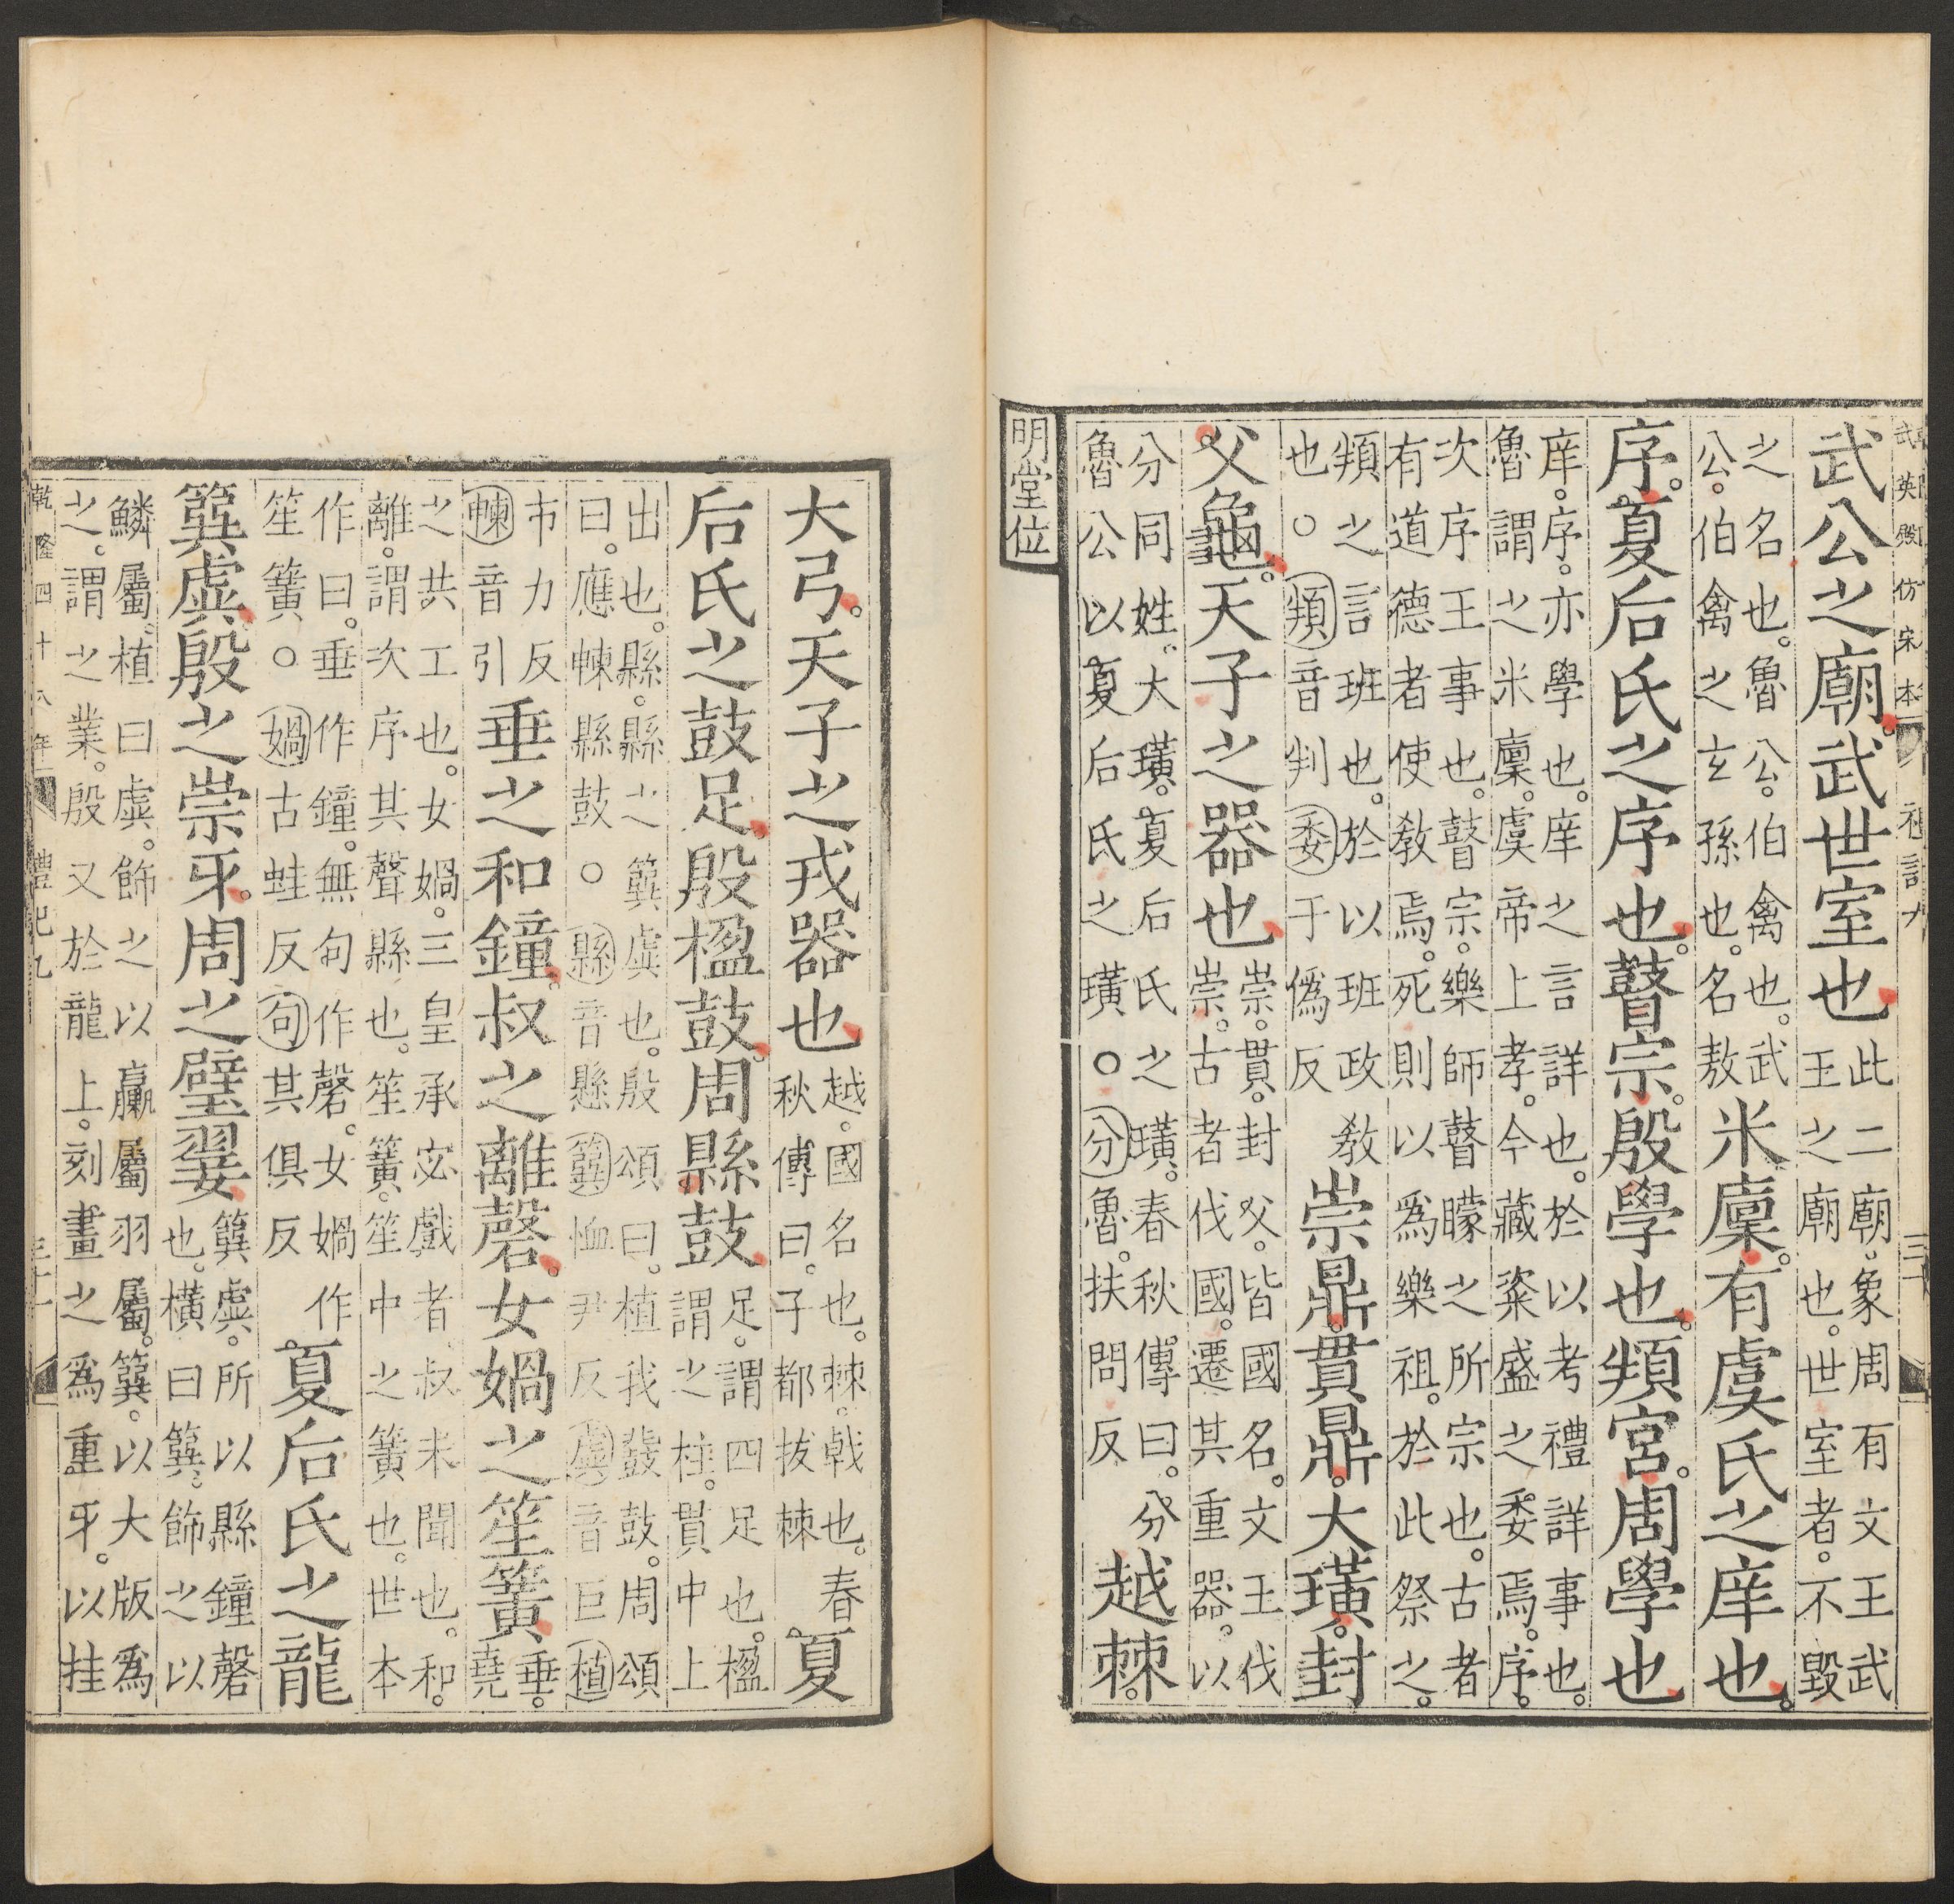 武英殿仿宋本 禮記九 三十
武公之廟。武世室也 此二廟。象周有文王武
王之廟也。世室者。不毀
之名也。魯公。伯禽也。武
公。伯禽之玄孫也。名敖 米廩。有虞氏之庠也。
序。夏后氏之序也。瞽宗。殷學也。頖宮。周學也
庠。序。亦學也。庠之言詳也。於以考禮詳事也。
魯謂之米廩。虞帝上孝。今藏粢盛之委焉。序。
次序王事也。瞽宗。樂師瞽矇之所宗也。古者
有道德者使敎焉。死則以爲樂祖。於此祭之。
頖之言班也。於以班政敎
也。○頖音判委于僞反 崇鼎。貫鼎。大璜。封
父龜。天子之器也 崇。貫。封父。皆國名。文王伐
崇。古者伐國。遷其重器。以
分同姓。大璜。夏后氏之璜。春秋傳曰。分
魯公以夏后氏之璜。○分魯。扶問反 越棘。
明堂位
大弓。天子之戎器也 越。國名也。棘。戟也。春
秋傳曰。子都拔棘 夏
后氏之鼓足。殷楹鼓。周縣鼓 足。謂四足也。楹
謂之柱。貫中上
出也。縣。縣之簨虡也。殷頌曰。植我鼗鼓。周頌
曰。應朄縣鼓。○縣音懸簨恤尹反虡音巨植
市力反
朄音引 垂之和鐘。叔之離磬。女媧之笙簧 垂。
堯
之共工也。女媧。三皇承宓戲者。叔未聞也。和。
離。謂次序其聲縣也。笙簧。笙中之簧也。世本
作曰。垂作鐘。無句作磬。女媧作
笙簧。○媧古蛙反句其俱反 夏后氏之龍
簨虡。殷之崇牙。周之璧翣 簨虡。所以縣鐘磬
也。橫曰簨。飾之以
鱗屬。植曰虡。飾之以臝屬羽屬。簨。以大版爲
之。謂之業。殷又於龍上。刻畫之爲重牙。以挂
乾隆四十八年 禮記九 三十一